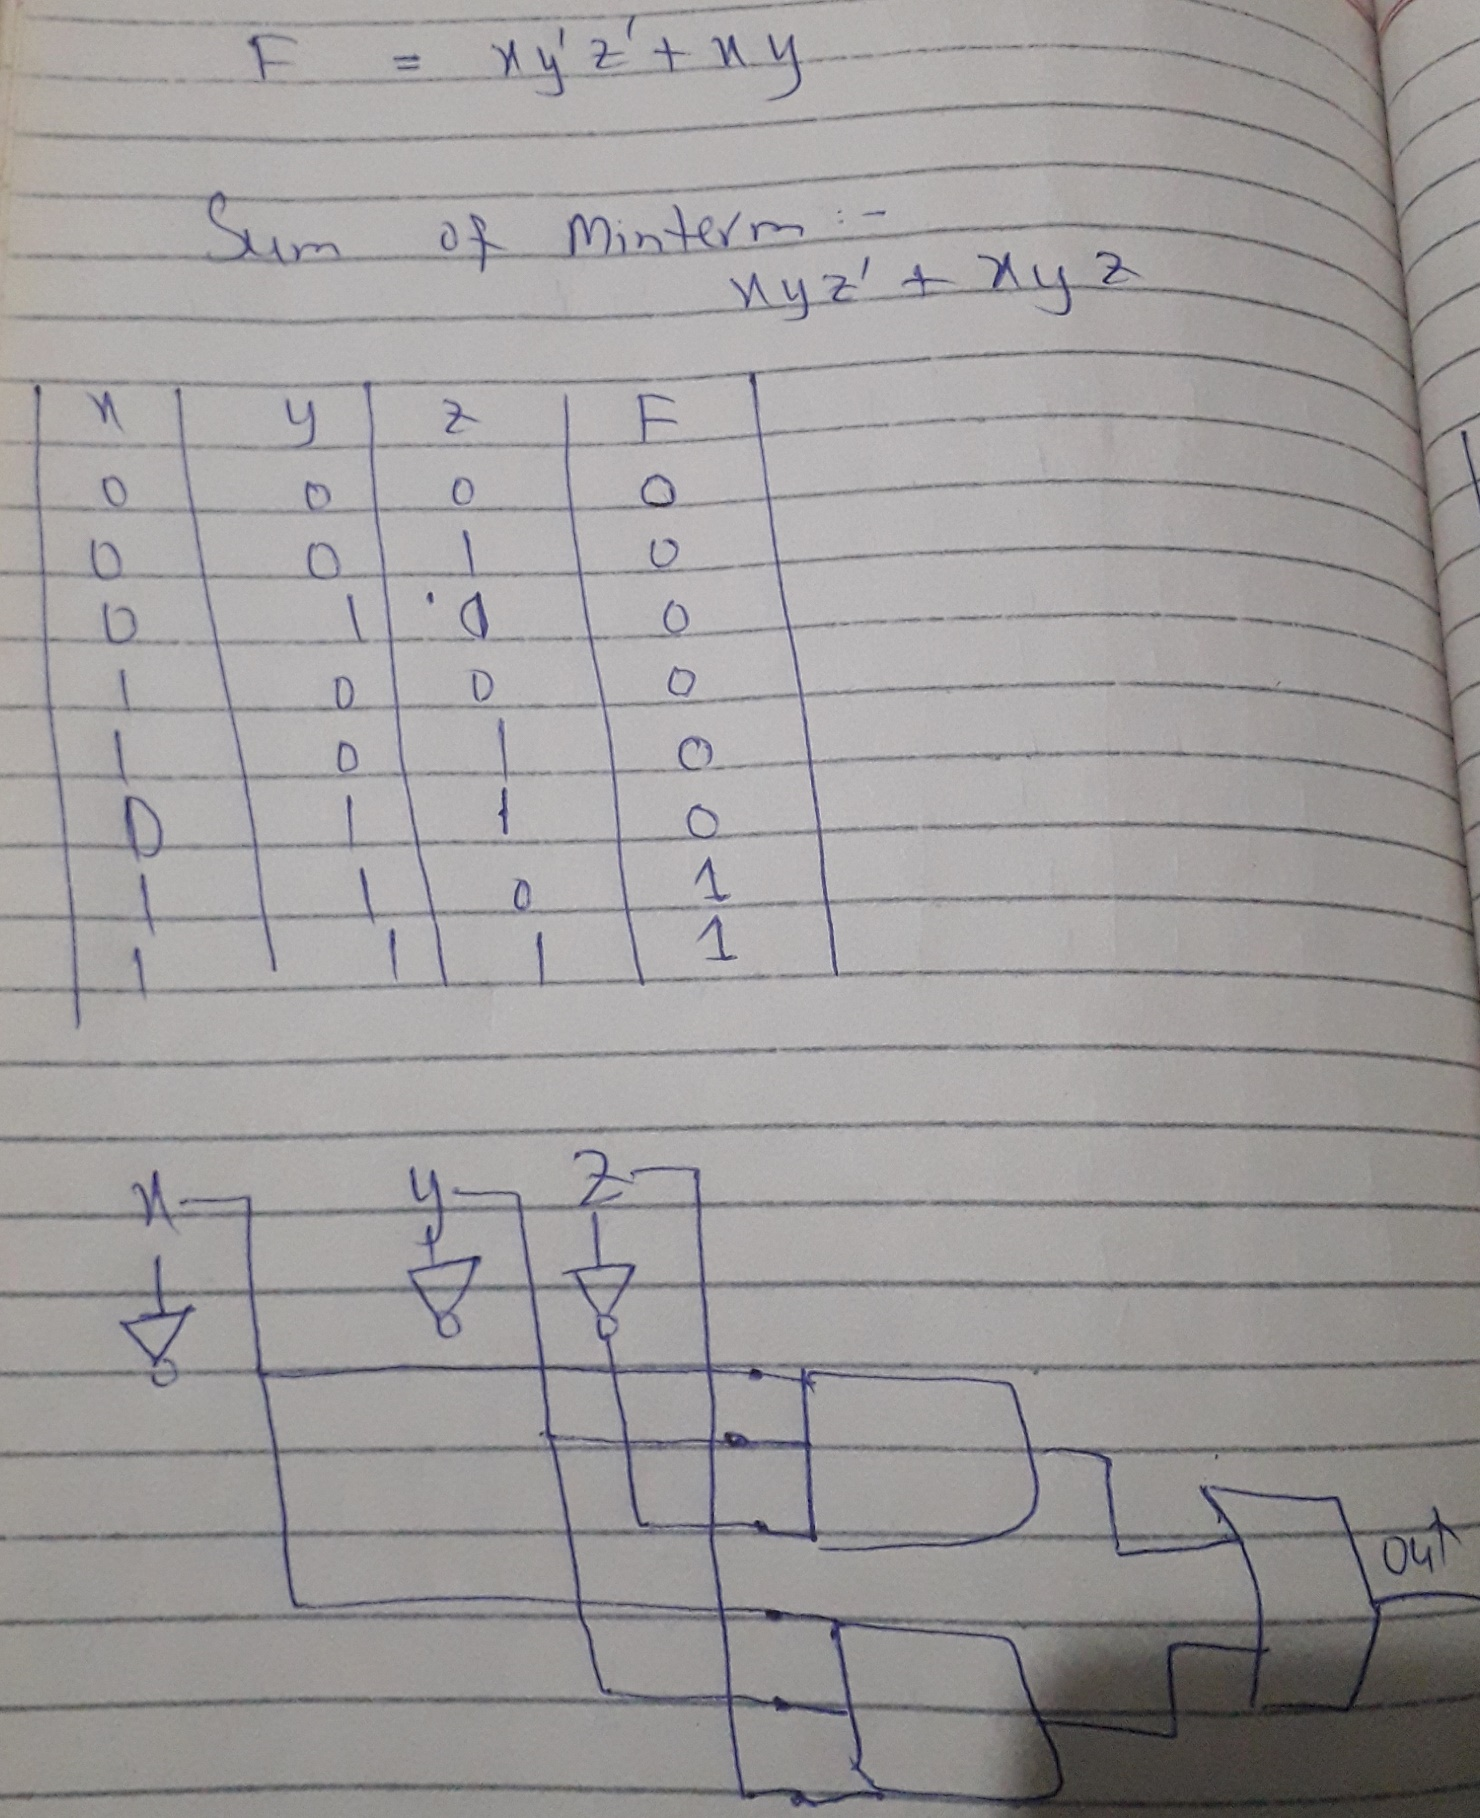 F = xy'z' + xy
Sum of Minterm :-
xyz' + xyz
x y z F
0 0 0 0
0 0 1 0
0 1 0 0
1 0 0 0
1 0 1 0
0 1 1 0
1 1 0 1
1 1 1 1
x y z
out